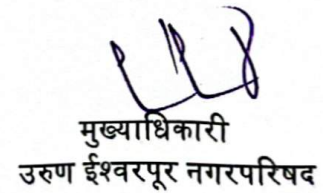 मुख्याधिकारी
उरुण ईश्वरपूर नगरपरिषद